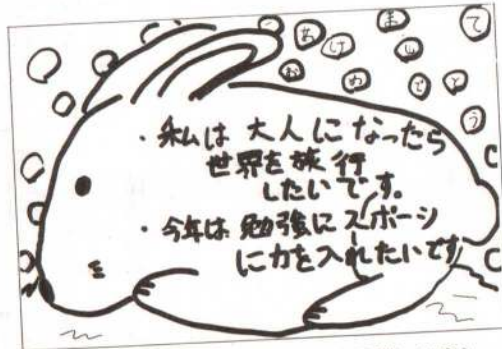 あけまして
おめでとう
・私は 大人に なったら
世界を旅行
したいです。
・今年は 勉強に スポーツ
に力を入れたいです